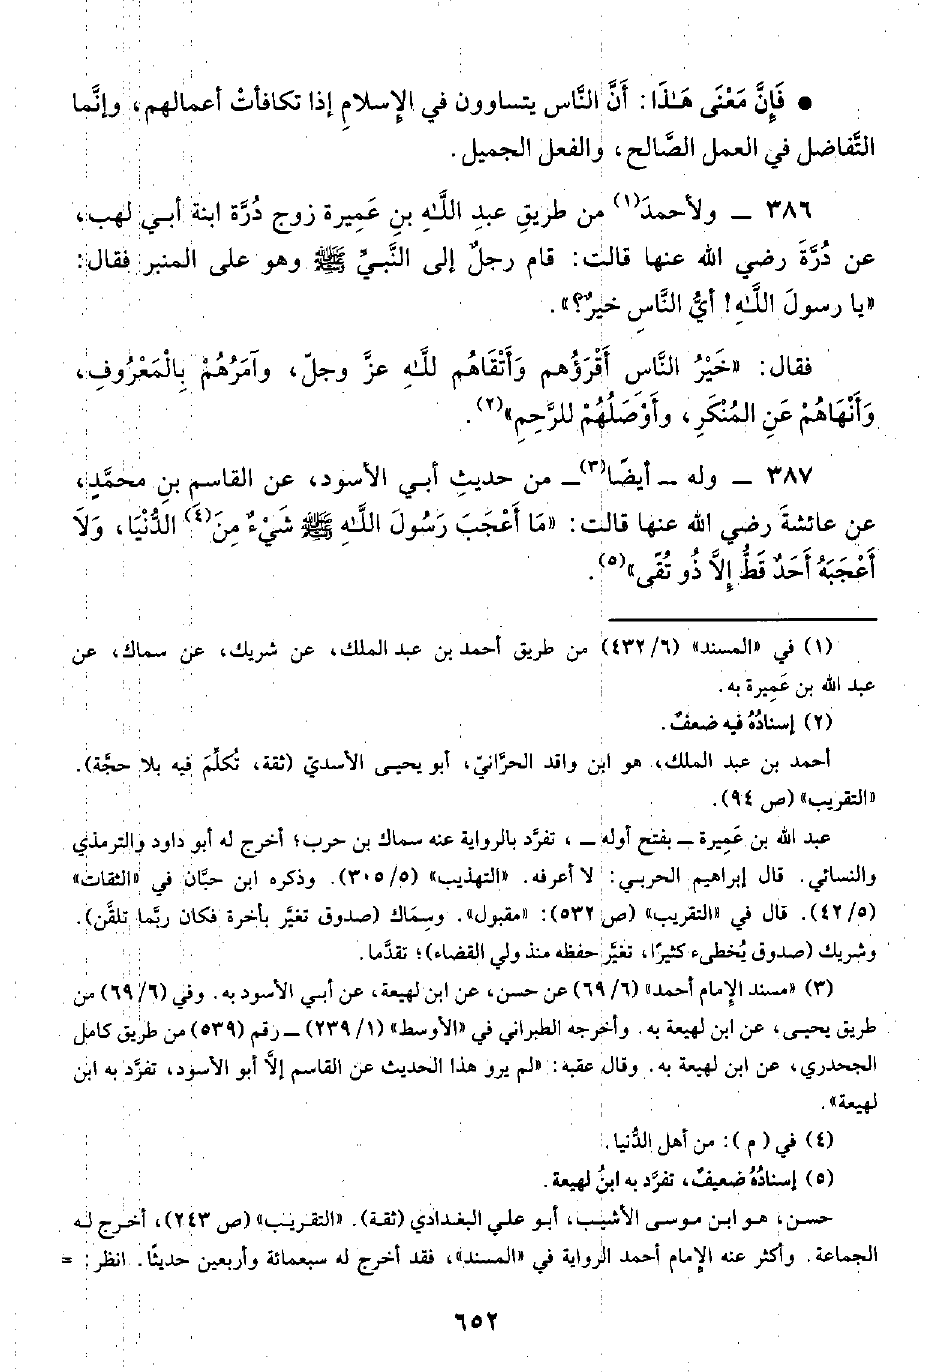 ● فَإِنَّ مَعْنَى هَـٰذَا: أَنَّ النَّاس يتساوون في الإِسلامِ إذا تكافأتْ أعمالهم، وإنَّما
التَّفاضل في العمل الصَّالح، والفعل الجميل.
٣٨٦ ــ ولأحمدَ(١) من طريقِ عبدِ اللَّـٰهِ بنِ عَمِيرة زوج دُرَّة ابنة أبـي لهب،
عن دُرَّةَ رضي الله عنها قالت: قام رجلٌ إلى النَّبـيِّ ﷺ وهو على المنبرِ فقال:
«يا رسولَ اللَّـٰهِ! أيُّ النَّاسِ خيرٌ؟».
فقال: «خَيْرُ النَّاسِ أَقْرَؤُهم وَأَتْقَاهُم للَّـٰهِ عزَّ وجلّ، وآمَرُهُمْ بِالْمَعْرُوفِ،
وَأَنْهَاهُمْ عَنِ المُنْكَرِ، وأَوْصَلُهُمْ للرَّحِمِ»(٢).
٣٨٧ ــ وله ــ أيضًا(٣)ــ من حديثِ أبـي الأسود، عن القاسم بنِ محمَّدٍ،
عن عائشةَ رضي الله عنها قالت: «مَا أَعْجَبَ رَسُولَ اللَّـٰهِ ﷺ شَيْءٌ مِنَ(٤) الدُّنْيَا، وَلاَ
أَعْجَبَهُ أَحَدٌ قَطُّ إِلاَّ ذُو تُقًى»(٥).
(١) في «المسند» (٦/٤٣٢) من طريق أحمد بن عبد الملك، عن شريك، عن سماك، عن
عبد الله بن عَمِيرة به.
(٢) إسنادُهُ فيه ضعفٌ.
أحمد بن عبد الملك، هو ابن واقد الحرَّانيّ، أبو يحيى الأسديّ (ثقة، تُكلِّمَ فيه بلا حجَّة).
«التقريب» (ص ٩٤).
عبد الله بن عَمِيرة ــ بفتح أوله ــ، تفرَّد بالرواية عنه سماك بن حرب؛ أخرج له أبو داود والترمذي
والنسائي. قال إبراهيم الحربي: لا أعرفه. «التهذيب» (٥/٣٠٥). وذكره ابن حبَّان في «الثقات»
(٥/٤٢). قال في «التقريب» (ص ٥٣٢): «مقبول». وسِمَاك (صدوق تغيَّر بأخرة فكان ربَّما تلقَّن).
وشريك (صدوق يُخطىء كثيرًا، تغيَّر حفظه منذ ولي القضاء)؛ تقدَّما.
(٣) «مسند الإِمام أحمد» (٦/٦٩) عن حسن، عن ابن لهيعة، عن أبـي الأسود به. وفي (٦/٦٩) من
طريق يحيى، عن ابن لهيعة به. وأخرجه الطبراني في «الأوسط» (١/٢٣٩) ــ رقم (٥٣٩) من طريق كامل
الجحدري، عن ابن لهيعة به. وقال عقبه: «لم يرو هذا الحديث عن القاسم إلاَّ أبو الأسود، تفرَّد به ابن
لهيعة».
(٤) في (م): من أهل الدُّنيا.
(٥) إسنادُهُ ضعيفٌ، تفرَّد به ابنُ لهيعة.
حسن، هو ابن موسى الأشيب، أبو علي البغدادي (ثقة). «التقريب» (ص ٢٤٣)، أخرج له
الجماعة. وأكثر عنه الإِمام أحمد الرواية في «المسند»، فقد أخرج له سبعمائة وأربعين حديثًا. انظر: =
٦٥٢